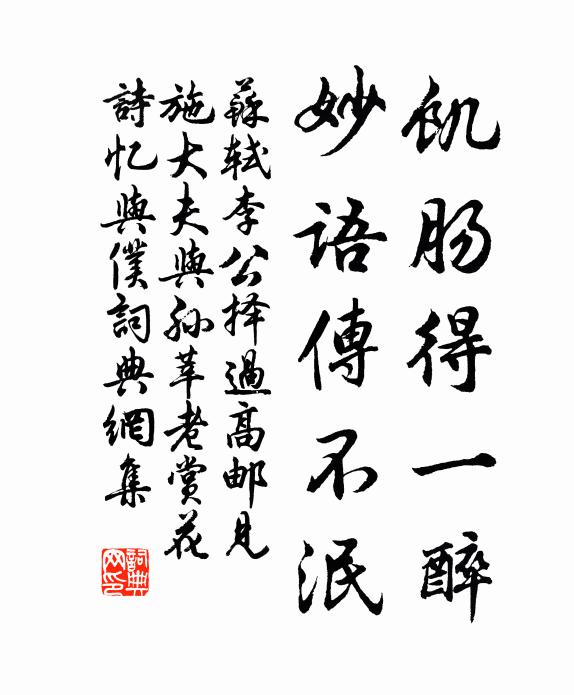 飢肠得一醉
妙語傳不泯
蘇轼李公择過高邮見
施大夫與孙莘老赏花
詩忆與僕詞典網集
詞典网印